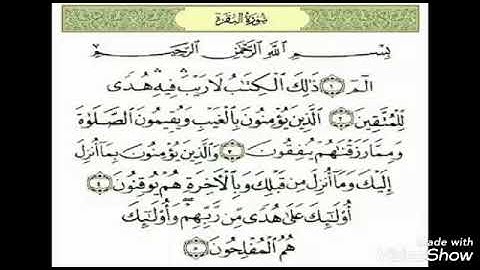 سُورَةُ البَقَرَةِ
بِسْمِ ٱللَّهِ ٱلرَّحْمَٰنِ ٱلرَّحِيمِ
الٓمٓ ۝١ ذَٰلِكَ ٱلْكِتَٰبُ لَا رَيْبَ ۛ فِيهِ ۛ هُدًى
لِّلْمُتَّقِينَ ۝٢ ٱلَّذِينَ يُؤْمِنُونَ بِٱلْغَيْبِ وَيُقِيمُونَ ٱلصَّلَوٰةَ
وَمِمَّا رَزَقْنَٰهُمْ يُنفِقُونَ ۝٣ وَٱلَّذِينَ يُؤْمِنُونَ بِمَآ أُنزِلَ
إِلَيْكَ وَمَآ أُنزِلَ مِن قَبْلِكَ وَبِٱلْأَخِرَةِ هُمْ يُوقِنُونَ ۝٤
أُو۟لَٰٓئِكَ عَلَىٰ هُدًى مِّن رَّبِّهِمْ ۖ وَأُو۟لَٰٓئِكَ
هُمُ ٱلْمُفْلِحُونَ ۝٥
Made with
VideoShow